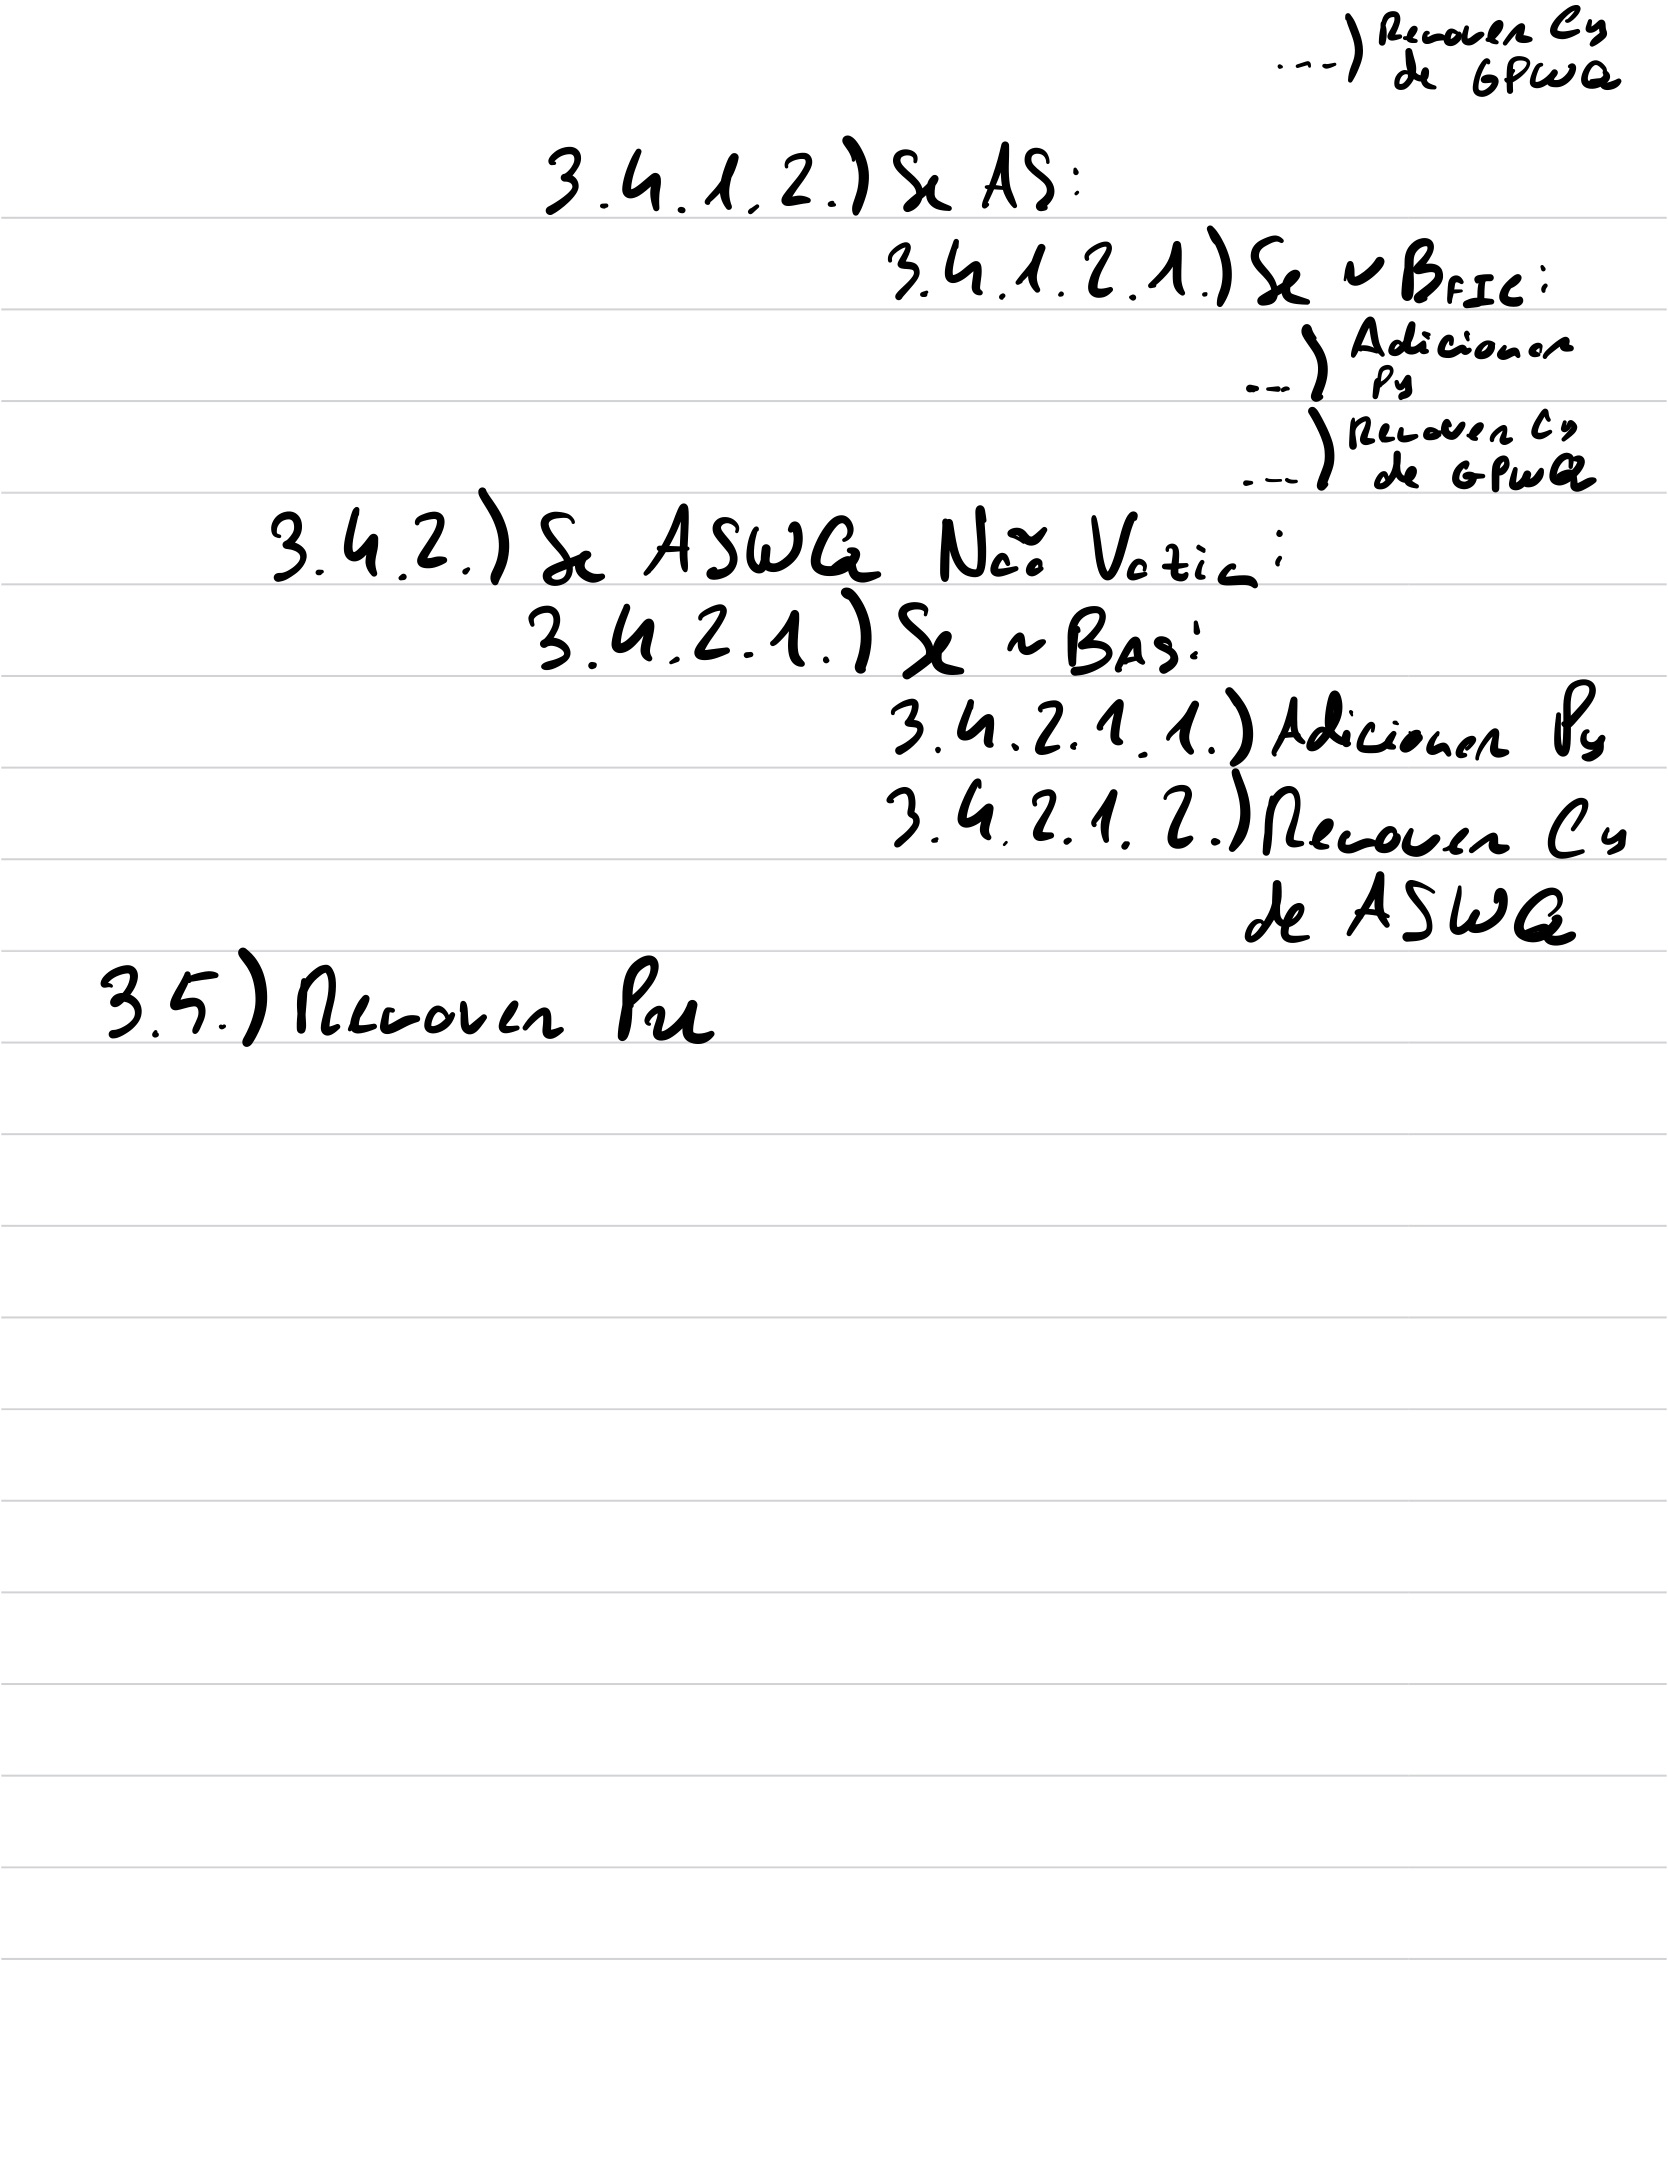 ---) Remover Cy
de GPWQ
3.4.1.2.) Se AS:
3.4.1.2.1.) Se ~ BFIC:
---) Adicionar
Py
---) Remover Cy
de GPWQ
3.4.2.) Se ASWQ Não Vazia:
3.4.2.1.) Se ~ BAS:
3.4.2.1.1.) Adicionar Py
3.4.2.1.2.) Remover Cy
de ASWQ
3.5.) Remover